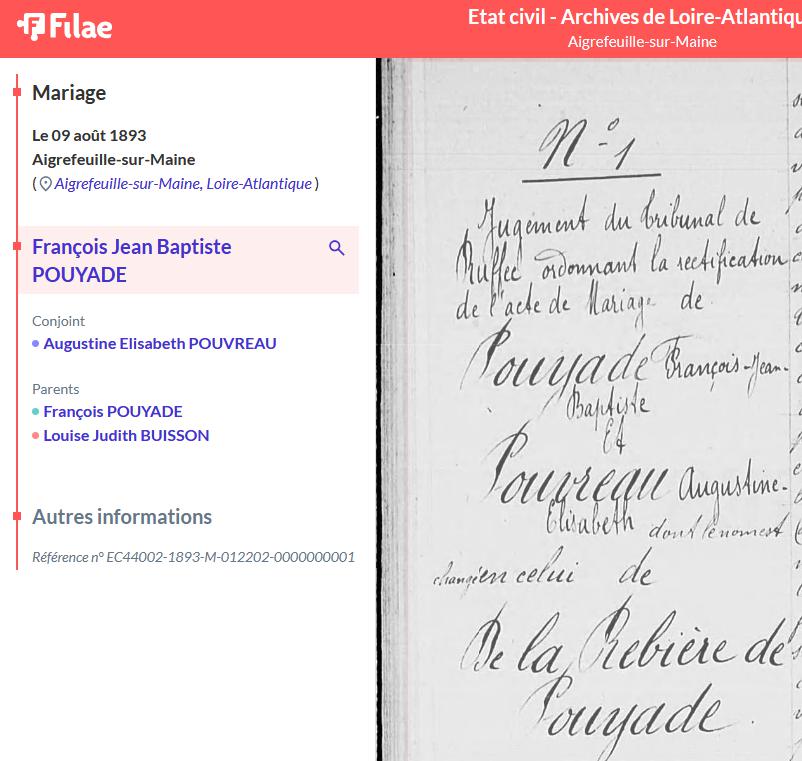 Filae
Etat civil - Archives de Loire-Atlantiqu
Aigrefeuille-sur-Maine
Mariage
Le 09 août 1893
Aigrefeuille-sur-Maine
( Aigrefeuille-sur-Maine, Loire-Atlantique )
François Jean Baptiste
POUYADE
Conjoint
Augustine Elisabeth POUVREAU
Parents
François POUYADE
Louise Judith BUISSON
Autres informations
Référence n° EC44002-1893-M-012202-0000000001
N° - 1
Jugement du tribunal de
Ruffec ordonnant la rectification
de l'acte de Mariage de
Pouyade François-Jean-
Baptiste
Et
Pouvreau Augustine-
Elisabeth dont le nom est
changé en celui de
De la Rebière de
Pouyade.